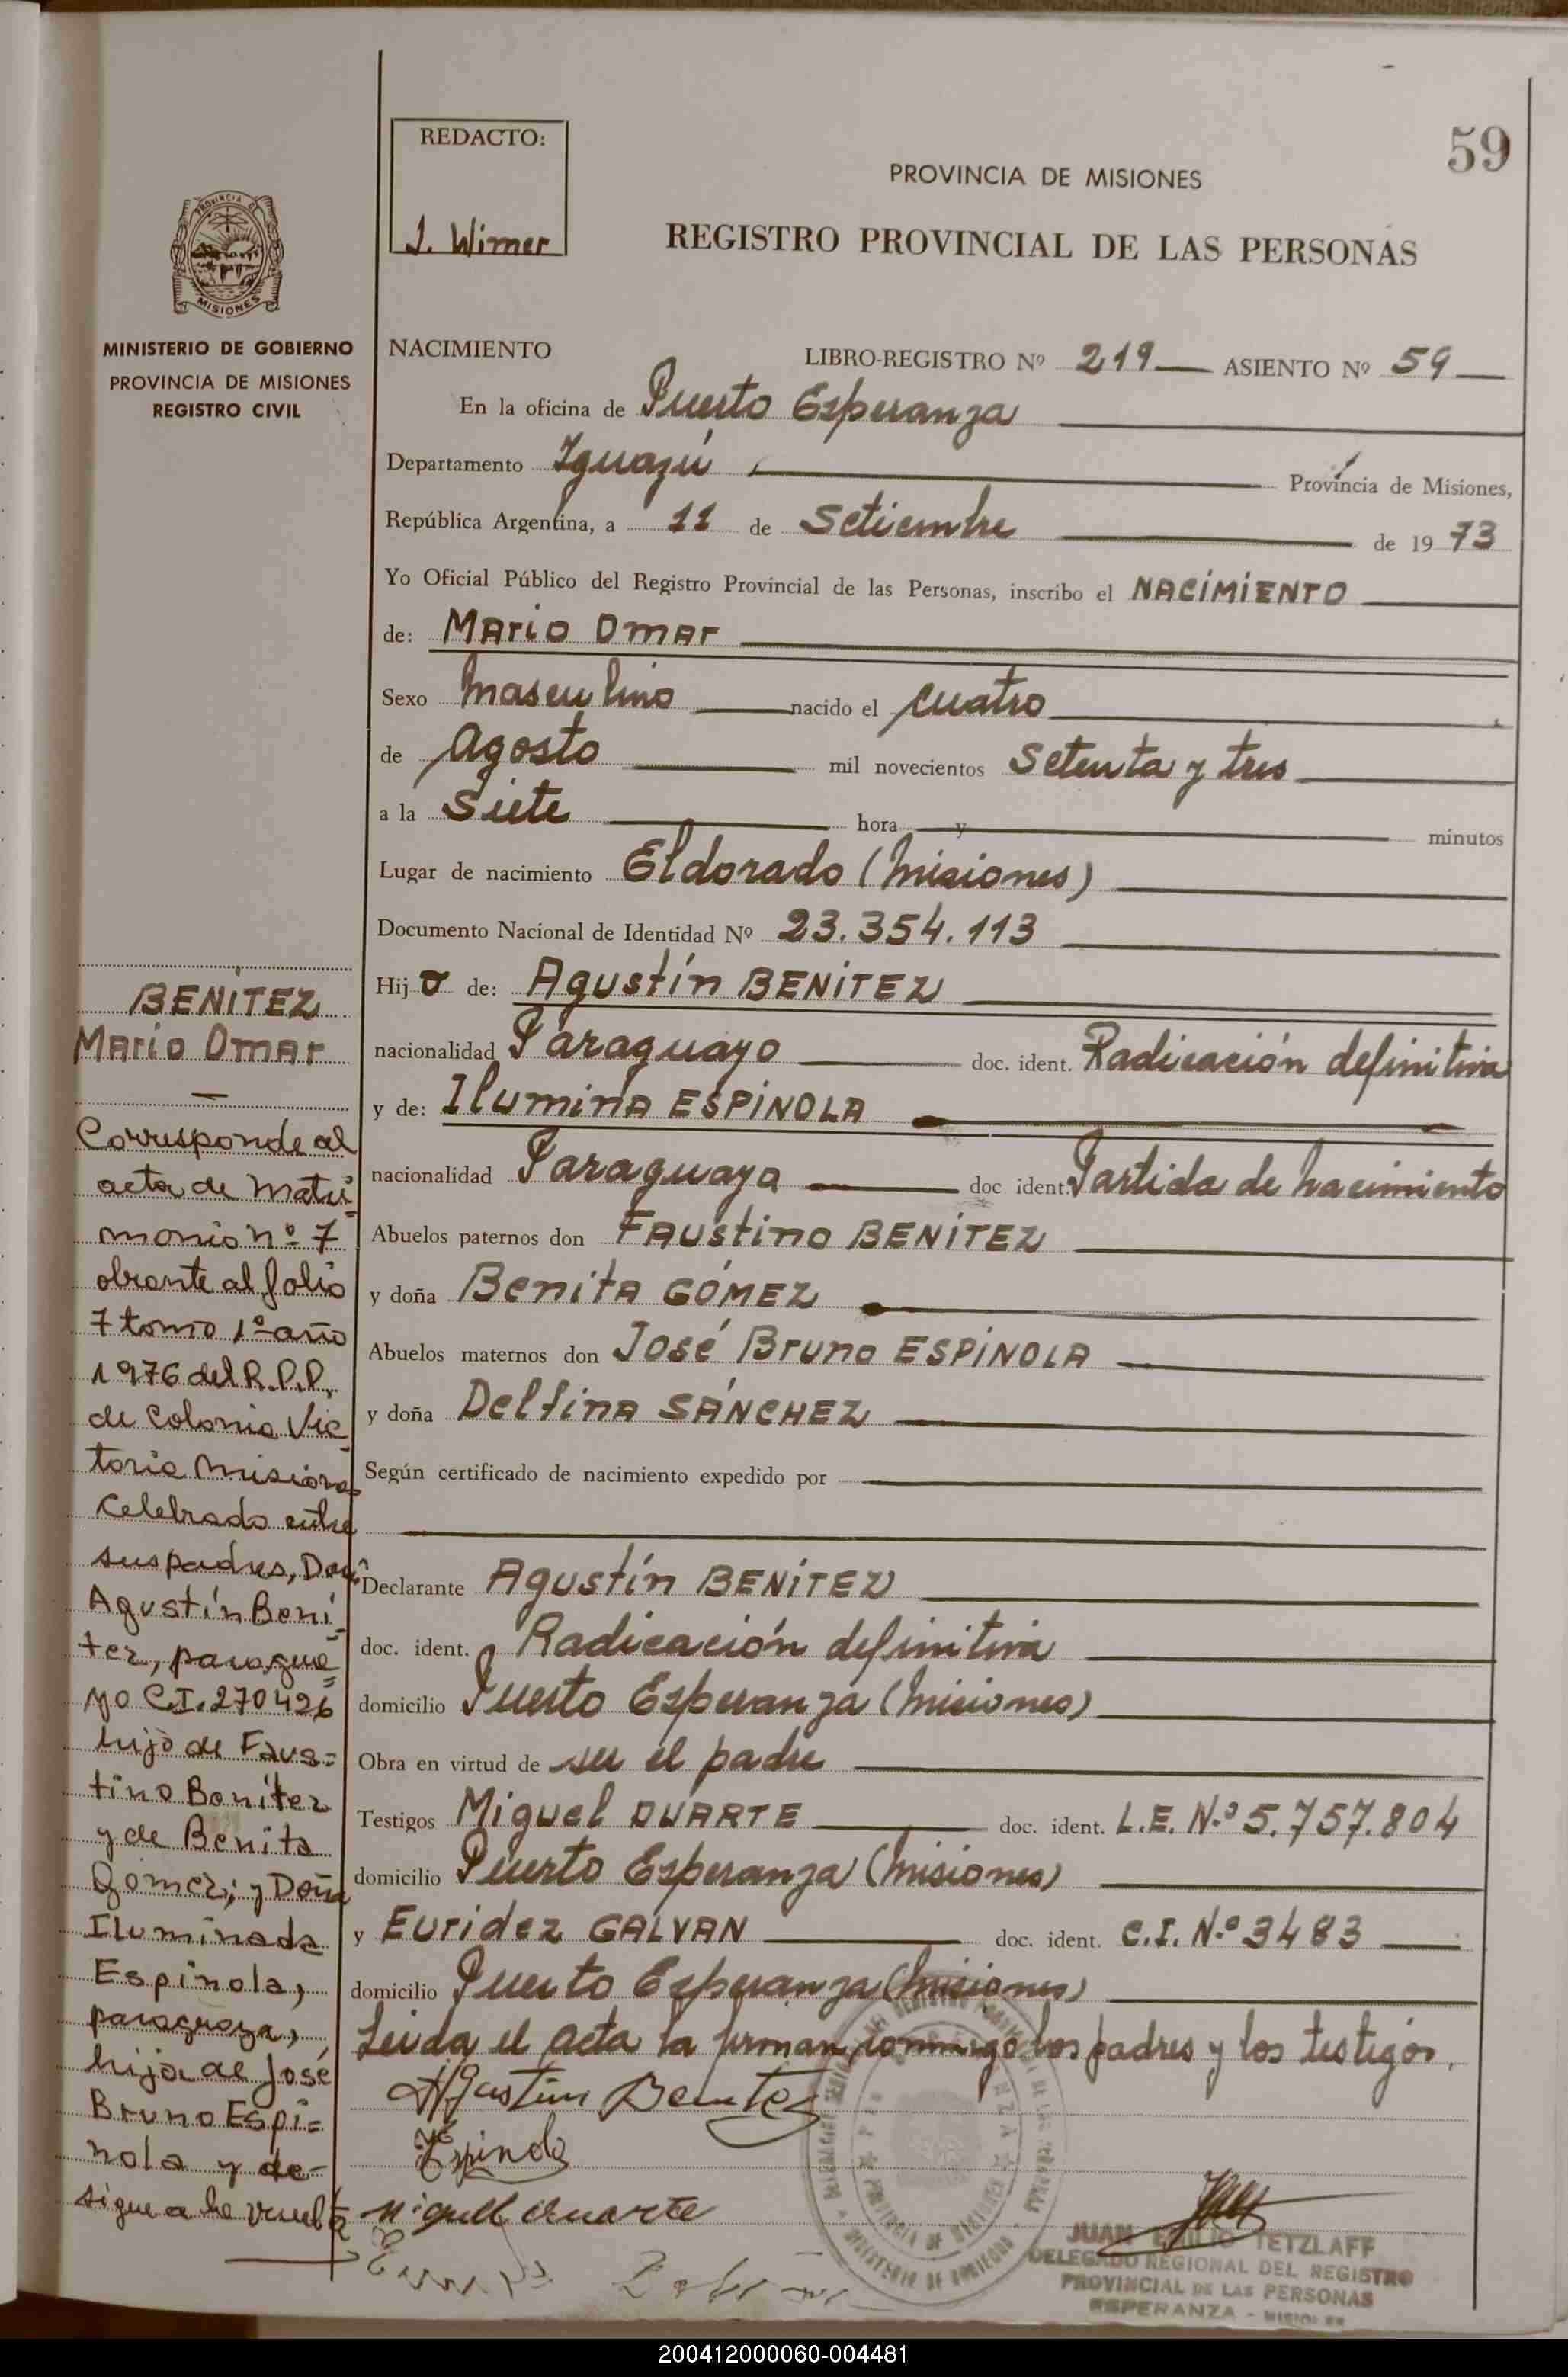 59
REDACTO:
J. Wimer
PROVINCIA DE MISIONES
REGISTRO PROVINCIAL DE LAS PERSONAS
PROVINCIA DE
MISIONES
MINISTERIO DE GOBIERNO
PROVINCIA DE MISIONES
REGISTRO CIVIL
NACIMIENTO LIBRO-REGISTRO Nº 219 ASIENTO Nº 59
En la oficina de Puerto Esperanza
Departamento Iguazú Provincia de Misiones,
República Argentina, a 11 de Setiembre de 19 73
Yo Oficial Público del Registro Provincial de las Personas, inscribo el NACIMIENTO
de: Mario Omar
Sexo Masculino nacido el cuatro
de Agosto mil novecientos Setenta y tres
a la Siete hora y minutos
Lugar de nacimiento Eldorado (Misiones)
Documento Nacional de Identidad Nº 23.354.113
Hij o de: Agustín BENÍTEZ
nacionalidad Paraguayo doc. ident. Radicación definitiva
y de: Ilumina ESPÍNOLA
nacionalidad Paraguaya doc ident. Partida de nacimiento
Abuelos paternos don FAUSTINO BENÍTEZ
y doña Benita GÓMEZ
Abuelos maternos don José Bruno ESPÍNOLA
y doña Delfina SÁNCHEZ
Según certificado de nacimiento expedido por
Declarante Agustín BENÍTEZ
doc. ident. Radicación definitiva
domicilio Puerto Esperanza (Misiones)
Obra en virtud de ser el padre
Testigos Miguel DUARTE doc. ident. L.E. N.º 5.757.804
domicilio Puerto Esperanza (Misiones)
y Euridez GALVAN doc. ident. C.I. N.º 3483
domicilio Puerto Esperanza (Misiones)
Leída el acta la firman conmigo los padres y los testigos.
Agustin Benitez
Espinola
Miguel duarte
JUAN EMILIO TETZLAFF
DELEGADO REGIONAL DEL REGISTRO
PROVINCIAL DE LAS PERSONAS
ESPERANZA - MISIONES
BENÍTEZ
Mario Omar
Corresponde al
acta de Matri=
monio Nº 7
obrante al folio
7 tomo 1º año
1976 del R.P.P.
de Colonia Vic
toria Misiones
Celebrado entre
sus padres, Don
Agustín Bení-
tez, paragua=
yo C.I. 270426
hijo de Faus=
tino Benítez
y de Benita
Gómez; y Doña
Iluminada
Espínola,
paraguaya,
hija de José
Bruno Espí=
nola y de-
sigue a la vuelta
200412000060-004481